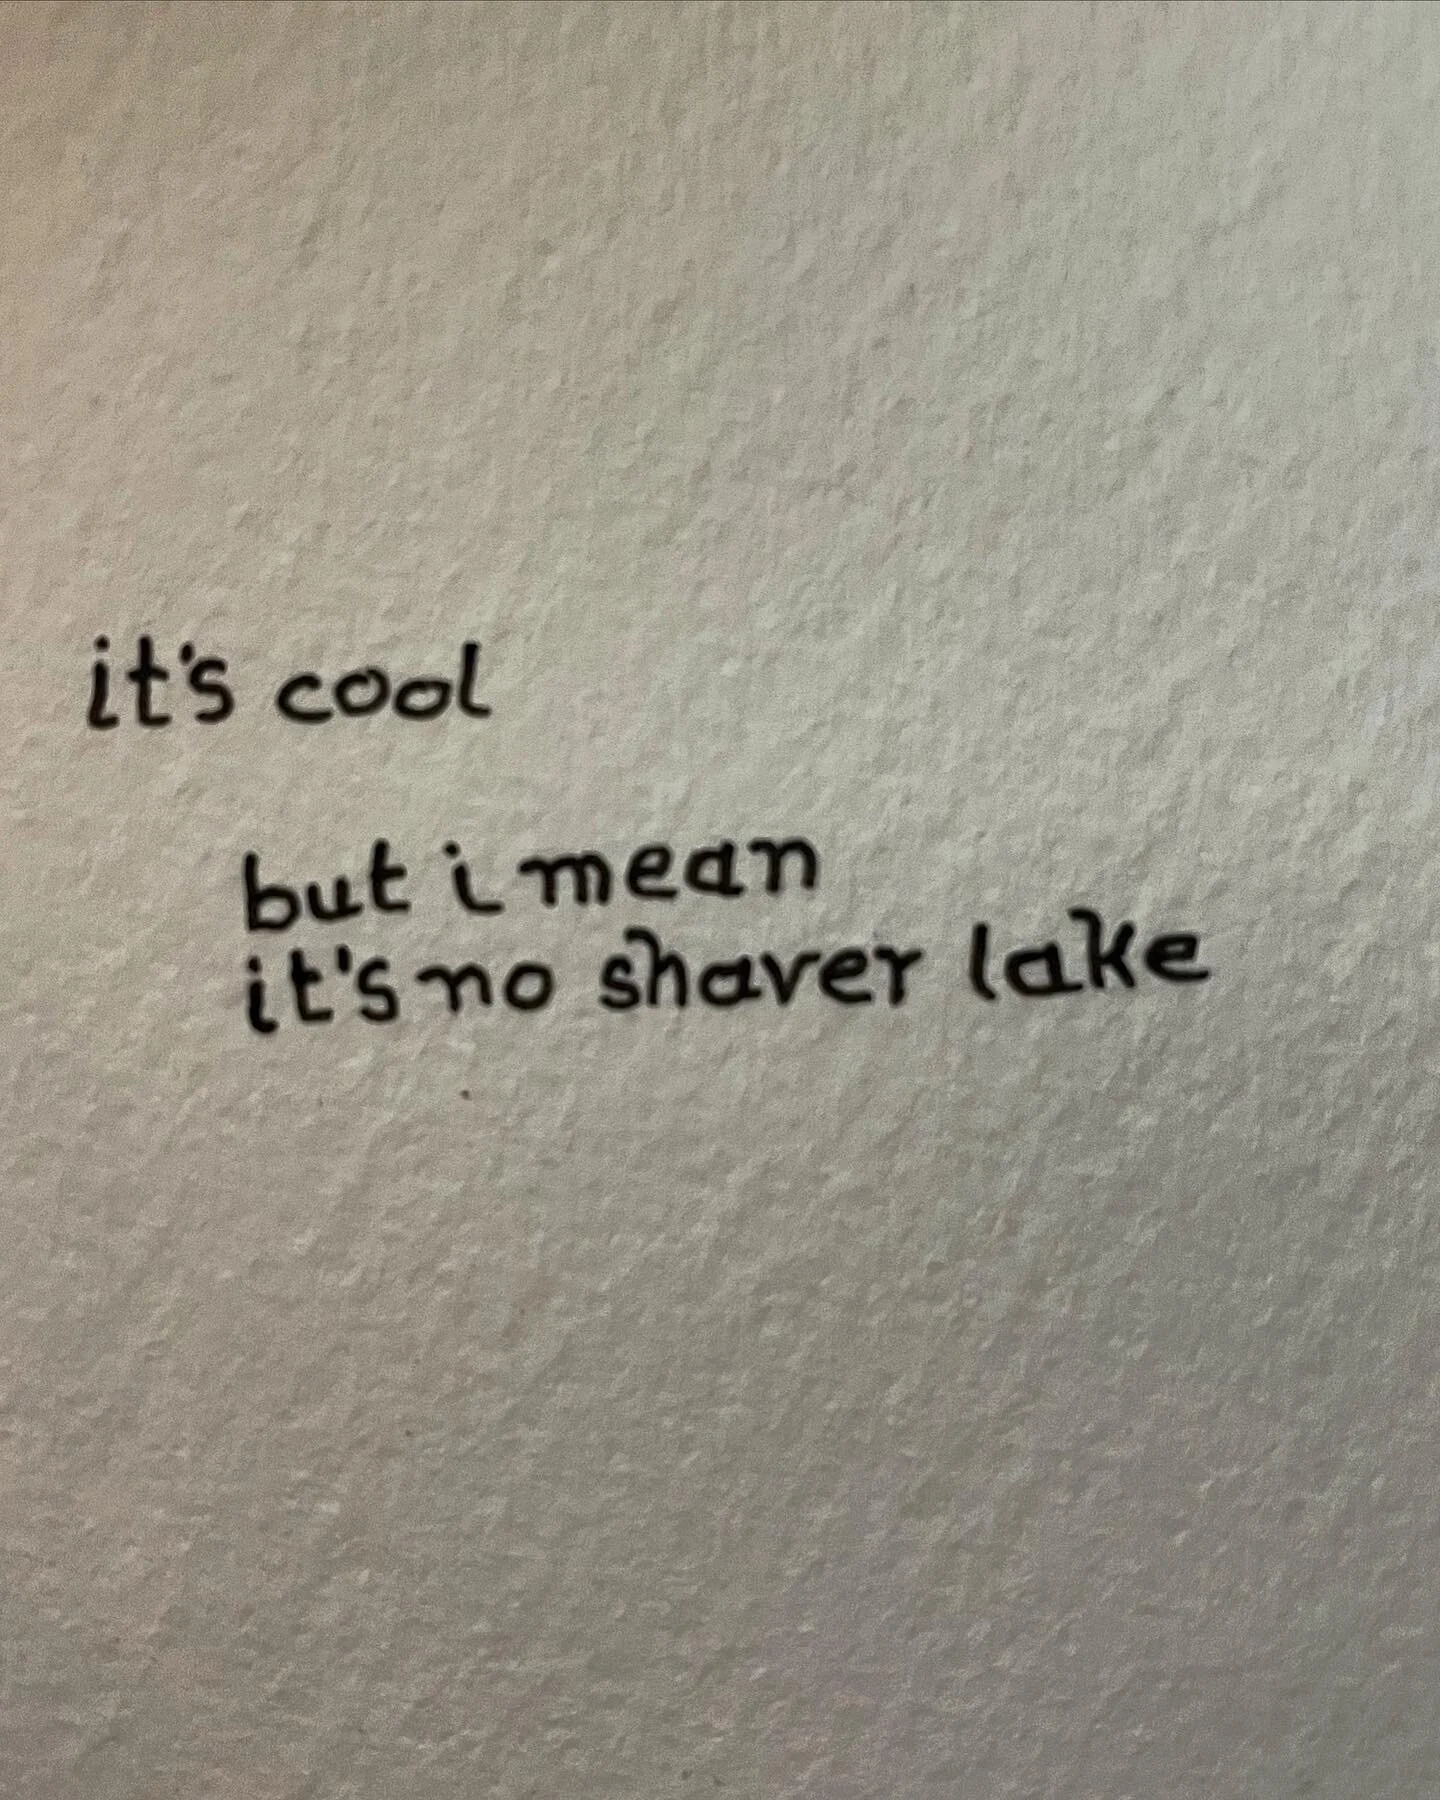 it's cool
but i mean
it's no shaver lake